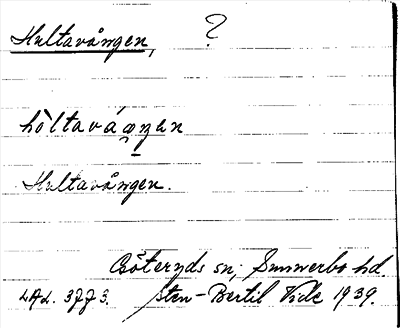 Hultavången, ?
hòltaváŋən
Hultavången.
Göteryds sn; Sunnerbo hd.
LAL. 3773. Sten-Bertil Vide 1939.